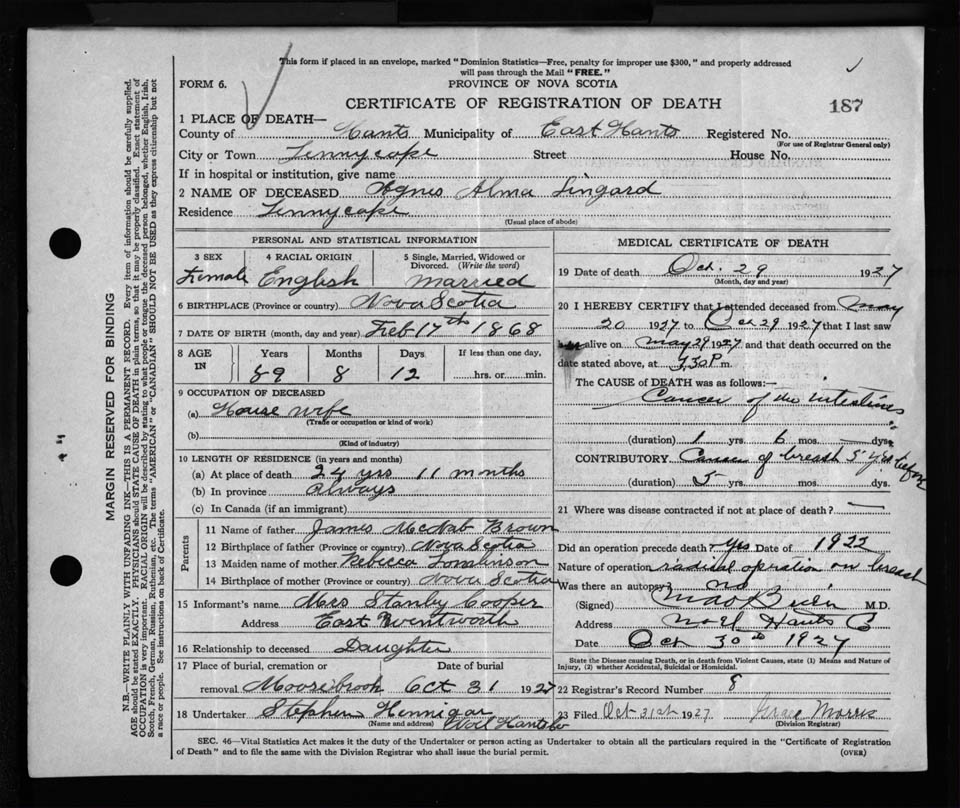 This form if placed in an envelope, marked "Dominion Statistics—Free, penalty for improper use $300," and properly addressed
will pass through the Mail "FREE."
FORM 6.
PROVINCE OF NOVA SCOTIA
CERTIFICATE OF REGISTRATION OF DEATH
187
1 PLACE OF DEATH—
County of Hants Municipality of East Hants Registered No.
(For use of Registrar General only)
City or Town Tennycape Street House No.
If in hospital or institution, give name
2 NAME OF DECEASED Agnes Alma Lingard
Residence Tennycape
(Usual place of abode)
PERSONAL AND STATISTICAL INFORMATION
3 SEX 4 RACIAL ORIGIN 5 Single, Married, Widowed or
Divorced. (Write the word)
Female English Married
6 BIRTHPLACE (Province or country) Nova Scotia
7 DATE OF BIRTH (month, day and year) Feb 17th 1868
8 AGE IN Years Months Days If less than one day,
59 8 12 hrs. or min.
9 OCCUPATION OF DECEASED
(a) House wife
(Trade or occupation or kind of work)
(b)
(Kind of industry)
10 LENGTH OF RESIDENCE (in years and months)
(a) At place of death 24 yrs 11 mnths
(b) In province always
(c) In Canada (if an immigrant)
Parents
11 Name of father James McNab Brown
12 Birthplace of father (Province or country) Nova Scotia
13 Maiden name of mother Rebecca Tomlinson
14 Birthplace of mother (Province or country) Nova Scotia
15 Informant's name Mrs Stanley Cooper
Address East Wentworth
16 Relationship to deceased Daughter
17 Place of burial, cremation or Date of burial
removal Moosebrook Oct 31 1927
18 Undertaker Stephen Hennigar
(Name and address) Noel Hants Co
MEDICAL CERTIFICATE OF DEATH
19 Date of death Oct. 29 1927
(Month, day and year)
20 I HEREBY CERTIFY that I attended deceased from May
20 1927 to Oct 29 1927 that I last saw
alive on May 29 1927 and that death occurred on the
date stated above, at 7.30 P m.
The CAUSE of DEATH was as follows:—
Cancer of the intestines
(duration) 1 yrs. 6 mos. — dys.
CONTRIBUTORY Cancer of breast 5 yrs before
(duration) 5 yrs. mos. dys.
21 Where was disease contracted if not at place of death? —
Did an operation precede death? yes Date of 1922
Nature of operation radical operation on breast
Was there an autopsy? no
(Signed) M.D.
Address Noel Hants Co
Date Oct 30th 1927
State the Disease causing Death, or in death from Violent Causes, state (1) Means and Nature of
Injury, (2) whether Accidental, Suicidal or Homicidal.
22 Registrar's Record Number 8
23 Filed Oct 31st 1927 Grace Morris
(Division Registrar)
SEC. 46—Vital Statistics Act makes it the duty of the Undertaker or person acting as Undertaker to obtain all the particulars required in the "Certificate of Registration
of Death" and to file the same with the Division Registrar who shall issue the burial permit. (OVER)
MARGIN RESERVED FOR BINDING
N.B.—WRITE PLAINLY WITH UNFADING INK—THIS IS A PERMANENT RECORD. Every item of information should be carefully supplied.
AGE should be stated EXACTLY. PHYSICIANS should STATE CAUSE OF DEATH in plain terms, so that it may be properly classified. Exact statement of
OCCUPATION is very important. RACIAL ORIGIN will be described by stating to what people or tongue the deceased person belonged, whether English, Irish,
Scotch, French, German, Russian, Ruthenian, etc. The terms "AMERICAN" or "CANADIAN" SHOULD NOT BE USED as they express citizenship but not
a race or people. See instructions on back of Certificate.